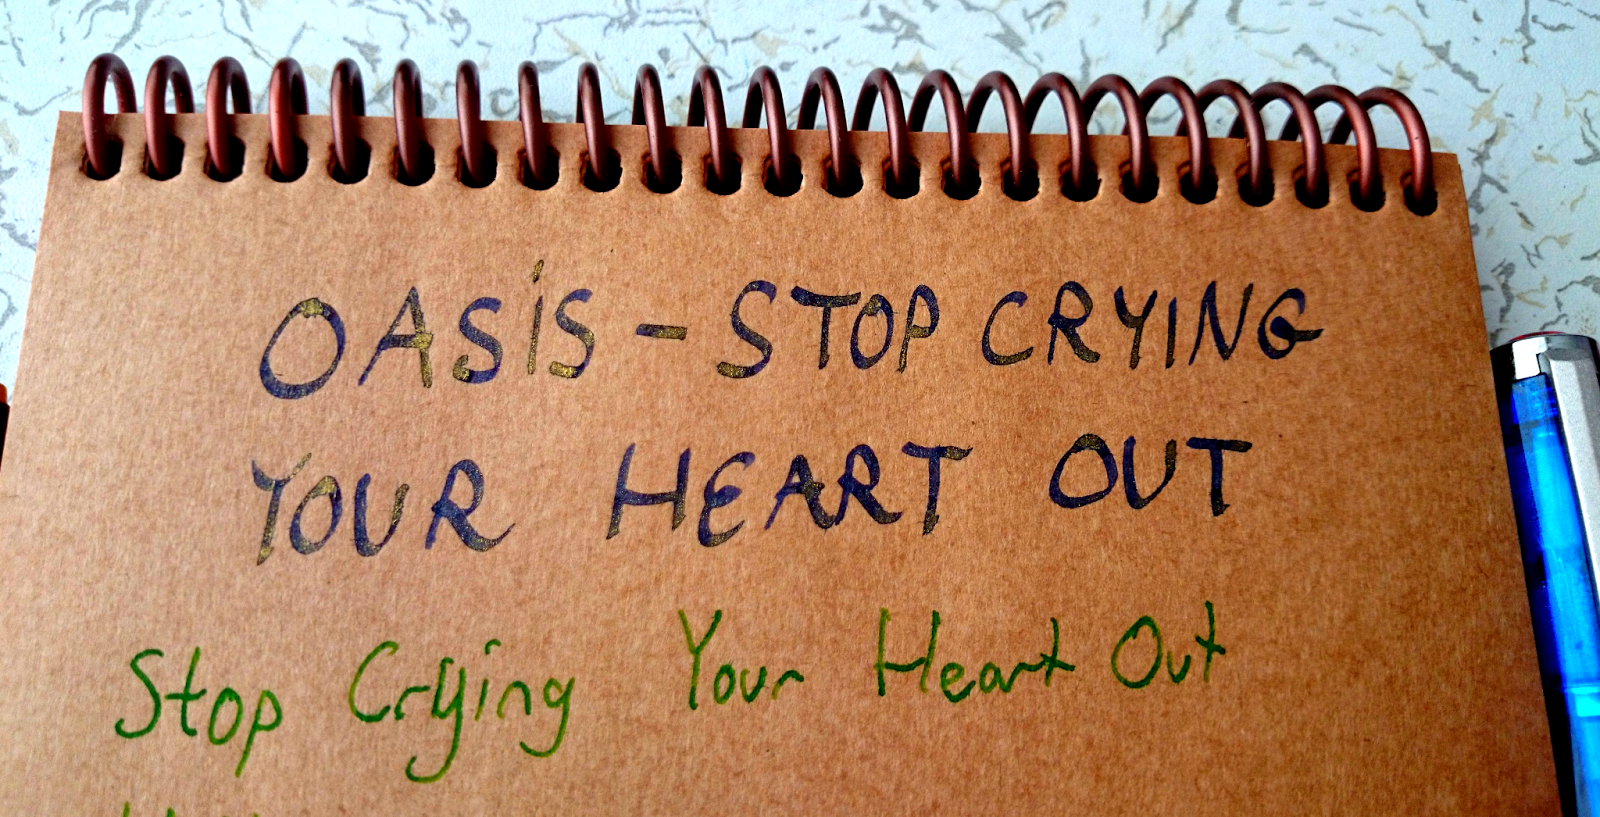 OASİS - STOP CRYING
YOUR HEART OUT
Stop Crying Your Heart Out